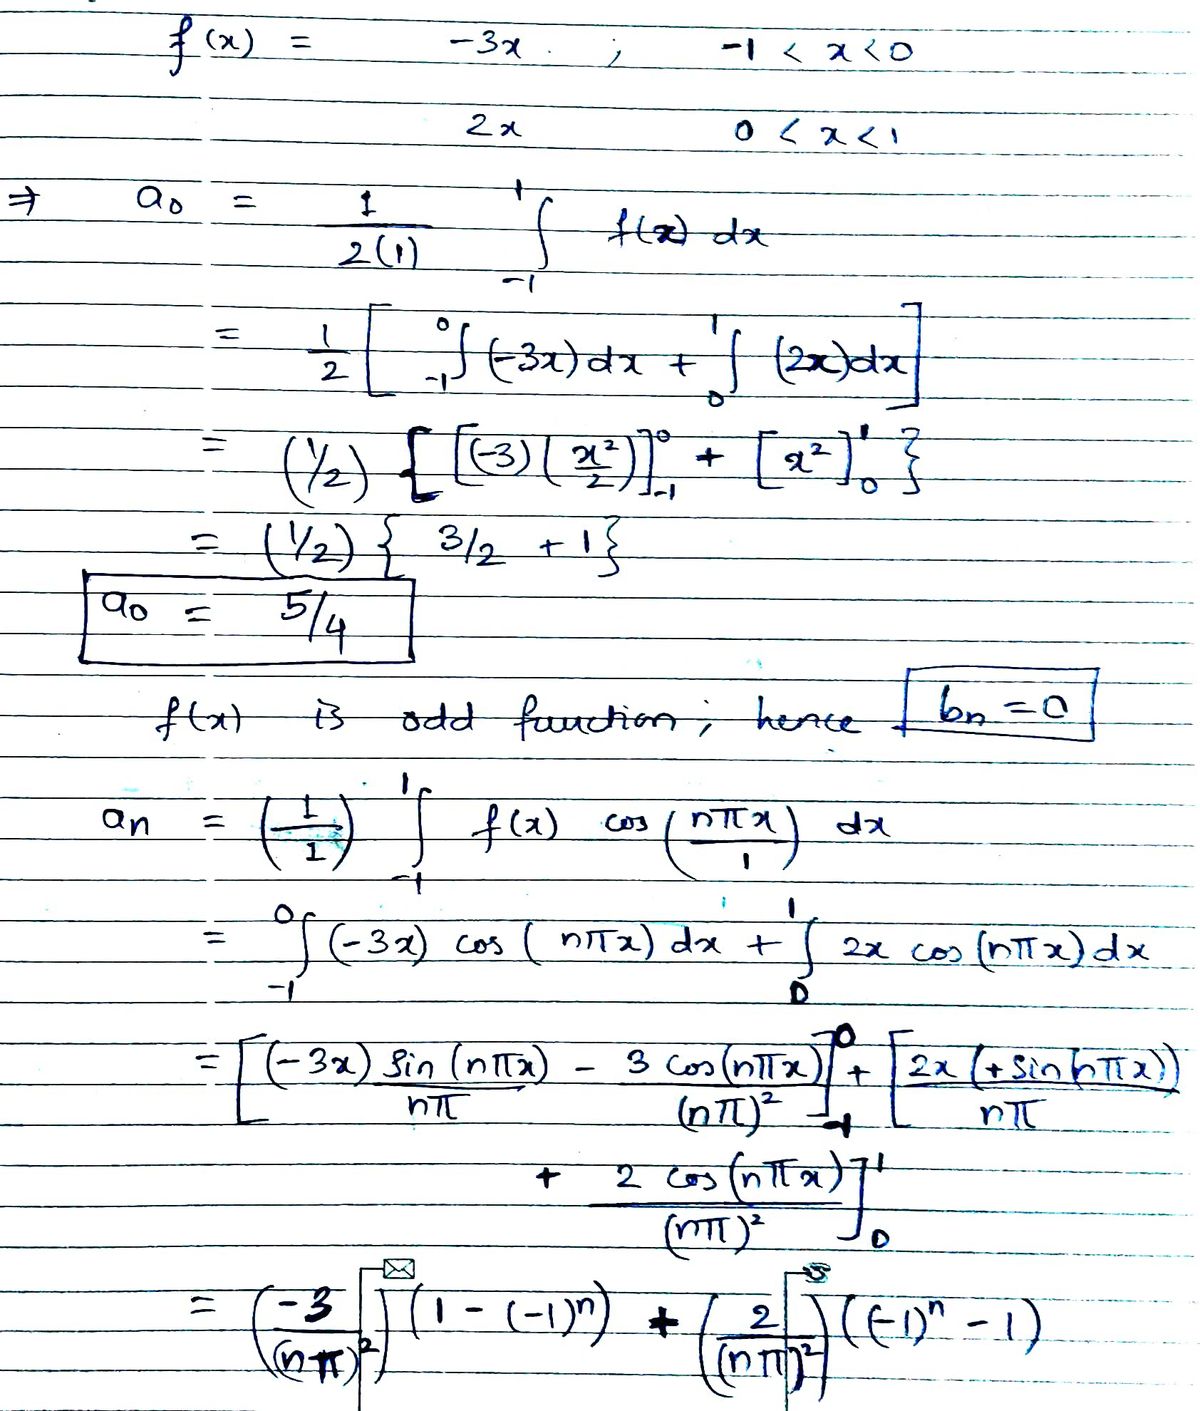 f(x) = -3x ; -1 < x < 0
2x 0 < x < 1
⇒ a₀ = 1/2(1) ∫₋₁¹ f(x) dx
= 1/2 [ ∫₋₁⁰ (-3x) dx + ∫₀¹ (2x) dx ]
= (1/2) { [(-3) (x²/2)]₋₁⁰ + [x²]₀¹ }
= (1/2) { 3/2 + 1 }
a₀ = 5/4
f(x) is odd function; hence bₙ = 0
aₙ = (1/1) ∫₋₁¹ f(x) cos (nπx/1) dx
= ∫₋₁⁰ (-3x) cos (nπx) dx + ∫₀¹ 2x cos (nπx) dx
= [ (-3x) sin (nπx)/nπ - 3 cos (nπx)/(nπ)² ]₋₁⁰ + [ 2x (+ sin (nπx))/nπ
+ 2 cos (nπx)/(nπ)² ]₀¹
= (-3/(nπ)²) (1 - (-1)ⁿ) + (2/(nπ)²) ((-1)ⁿ - 1)